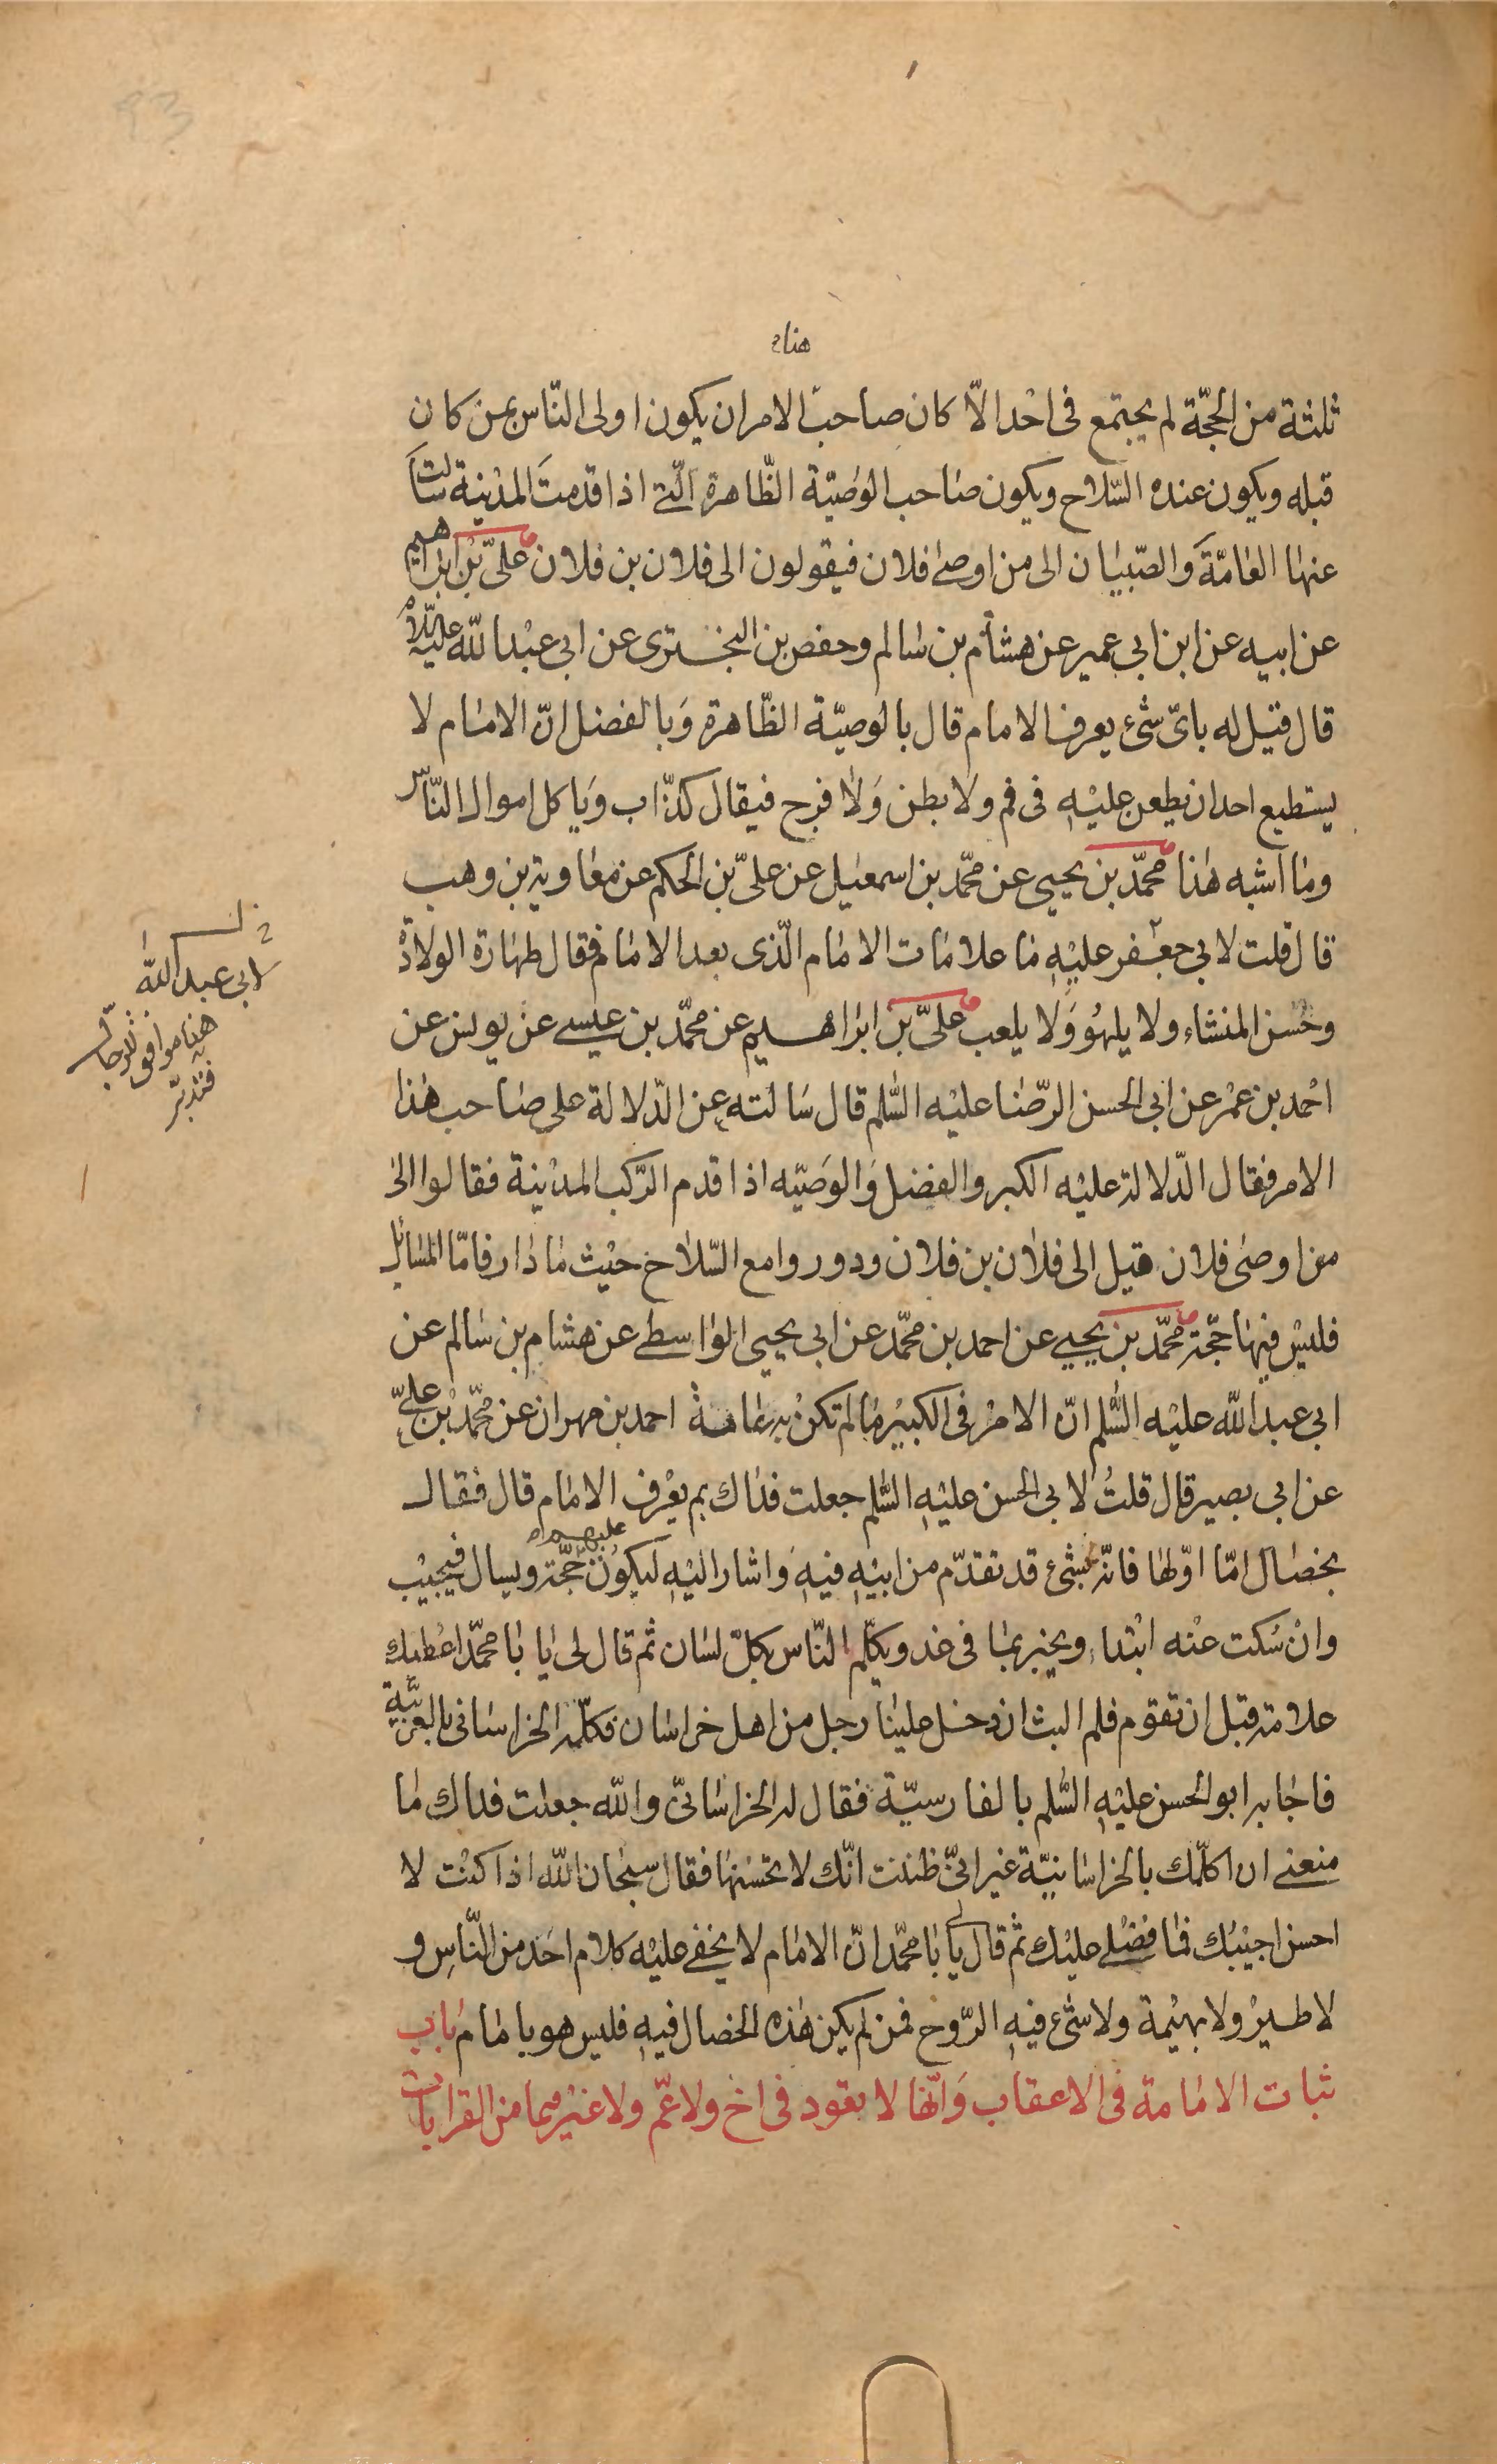 هنا
ثلثة من الحجّة لم يجتمع فى احد الّا كان صاحب الامر ان يكون اولى النّاس بمن كان
قبله ويكون عنده السّلاح ويكون صاحب الوصيّة الظّاهرة الّتى اذا قدمت المدينة سالت
عنها العامّة والصّبيان الى من اوصى فلان فيقولون الى فلان بن فلان علىّ بن ابراهيم
عن ابيه عن ابن ابى عمير عن هشام بن سالم وحفص بن البخترى عن ابى عبد الله عليه السّلام
قال قيل له باىّ شىء يعرف الامام قال بالوصيّة الظّاهرة وبالفضل انّ الامام لا
يستطيع احد ان يطعن عليه فى فم ولا بطن ولا فرج فيقال كذّاب وياكل اموال النّاس
وما اشبه هذا محمّد بن يحيى عن محمّد بن اسمعيل عن علىّ بن الحكم عن معاوية بن وهب
قال قلت لابى جعفر عليه ما علامات الامام الّذى بعد الامام فقال طهارة الولادة
وحسن المنشاء ولا يلهو ولا يلعب علىّ بن ابراهيم عن محمّد بن عيسى عن يونس عن
احمد بن عمر عن ابى الحسن الرّضا عليه السّلم قال سالته عن الدّلالة على صاحب هذا
الامر فقال الدّلالة عليه الكبر والفضل والوصيّه اذا قدم الرّكب المدينة فقالوا الى
من اوصى فلان قيل الى فلان بن فلان ودوروا مع السّلاح حيث ما دار فامّا المسائل
فليس فيها حجّة محمّد بن يحيى عن احمد بن محمّد عن ابى يحيى الواسطى عن هشام بن سالم عن
ابى عبد الله عليه السّلم انّ الامر فى الكبير ما لم تكن به عاهة احمد بن مهران عن محمّد بن علىّ
عن ابى بصير قال قلت لابى الحسن عليه السّلم جعلت فداك بم يعرف الامام قال فقال
بخصال امّا اوّلها فانّه بشىء قد تقدّم من ابيه فيه واشار اليه ليكون عليهم حجّة ويسال فيجيب
وان سكت عنه ابتدا ويخبر بما فى غد ويكلّم النّاس بكلّ لسان ثم قال لى يا با محمّد اعطيك
علامة قبل ان تقوم فلم البث ان دخل علينا رجل من اهل خراسان فكلّمه الخراسانى بالعربيّة
فاجابه ابو الحسن عليه السّلم بالفارسيّة فقال له الخراسانىّ والله جعلت فداك ما
منعنى ان اكلّمك بالخراسانيّة غير انّى ظننت انّك لا تحسنها فقال سبحان الله اذا كنت لا
احسن اجيبك فما فضلى عليك ثم قال لى يا با محمّد انّ الامام لا يخفى عليه كلام احد من النّاس و
لا طير ولا بهيمة ولا شىء فيه الرّوح فمن لم يكن هذه الخصال فيه فليس هو بامام باب
ثبات الامامة فى الاعقاب وانّها لا تعود فى اخ ولا عمّ ولا غيرهما من القرابات
لابى عبد الله
هنا موافق للرجال
فتدبّر